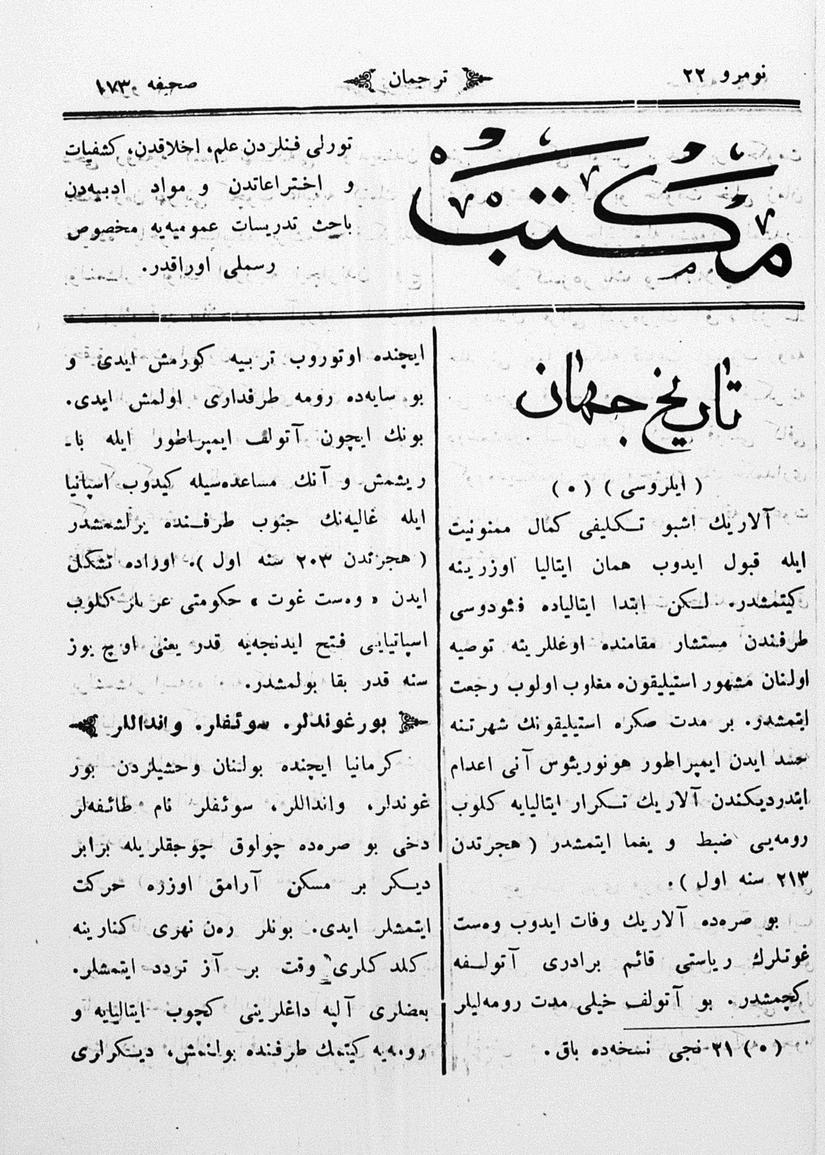 نومرو ٢٢
ترجمان
صحیفه ١٧٣
مكتب
تورلی فنلردن علم، اخلاقدن، كشفیات
و اختراعاتدن و مواد ادبیه‌دن
باحث تدریسات عمومیه‌یه مخصوص
رسملی اوراقدر.
تاریخ جهان
( ایلروسی ) (٥)
آلاریك اشبو تـكلیفی كمال ممنونیت
ایله قبول ایدوب همان ایتالیا اوزرینه
كیتمشدر. لـكن ابتدا ایتالیاده فئودوسی
طرفندن مستشار مقامنده اوغللرینه توصیه
اولنان مشهور استیلیقونه مغلوب اولوب رجعت
ایتمشدر. بر مدت صكره استیلیقونك شهرتنه
حسد ایدن ایمپراطور هونوریئوس آنی اعدام
ایتدردیكندن آلاریك تـكرار ایتالیایه كلوب
رومه‌یی ضبط و یغما ایتمشدر ( هجرتدن
٢١٣ سنه اول ).
بو صره‌ده آلاریك وفات ایدوب وه‌ست
غوتلرك ریاستی قائم برادری آتولـفه
كچمشدر. بو آتولف خیلی مدت رومه‌لیلر
(٥) ٢١ نجی نسخه‌ده باق.
ایچنده اوتوروب تربیه كورمش ایدی و
بو سایه‌ده رومه طرفداری اولمش ایدی.
بونك ایچون آتولف ایمپراطور ایله با-
ریشمش و آنك مساعده‌سیله كیدوب اسپانیا
ایله غالیه‌نك جنوب طرفـنده یرلشمشدر
( هجرتدن ٢٠٣ سنه اول ). اوراده تشكل
ایدن « وه‌ست غوت » حكومتی عربلر كلوب
اسپانیایی فتح ایدنجه‌یه قدر یعنی اوچ یوز
سنه قدر بقا بولمشدر.
بورغوندلر. سوئفلر. وانداللر
كرمانیا ایچنده بولنان وحشیلردن بور
غوندلر، وانداللر، سوئفلر نام طائفه‌لر
دخی بو صره‌ده چولوق چوجقلریله برابر
دیـكر بر مسكن آرامق اوزره حركت
ایتمشلر ایدی. بونلر ره‌ن نهری كنارینه
كلد كلری وقت بر آز تردد ایتمشلر.
بعضلری آلپه داغلرینی كچوب ایتالیایه و
رومه‌یه كیتمك طرفنده بولنمش، دیـكرلری